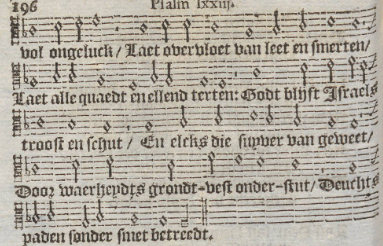 196 Psalm lxxiij.
vol ongeluck / Laet overvloet van leet en smerten /
Laet alle quaedt en ellend terten: Godt blyft Israels
troost en schut / En elcks die supver van geweet /
Door waerheydts grondt-vest onder-stut / Deuchts
paden sonder smet betreedt.